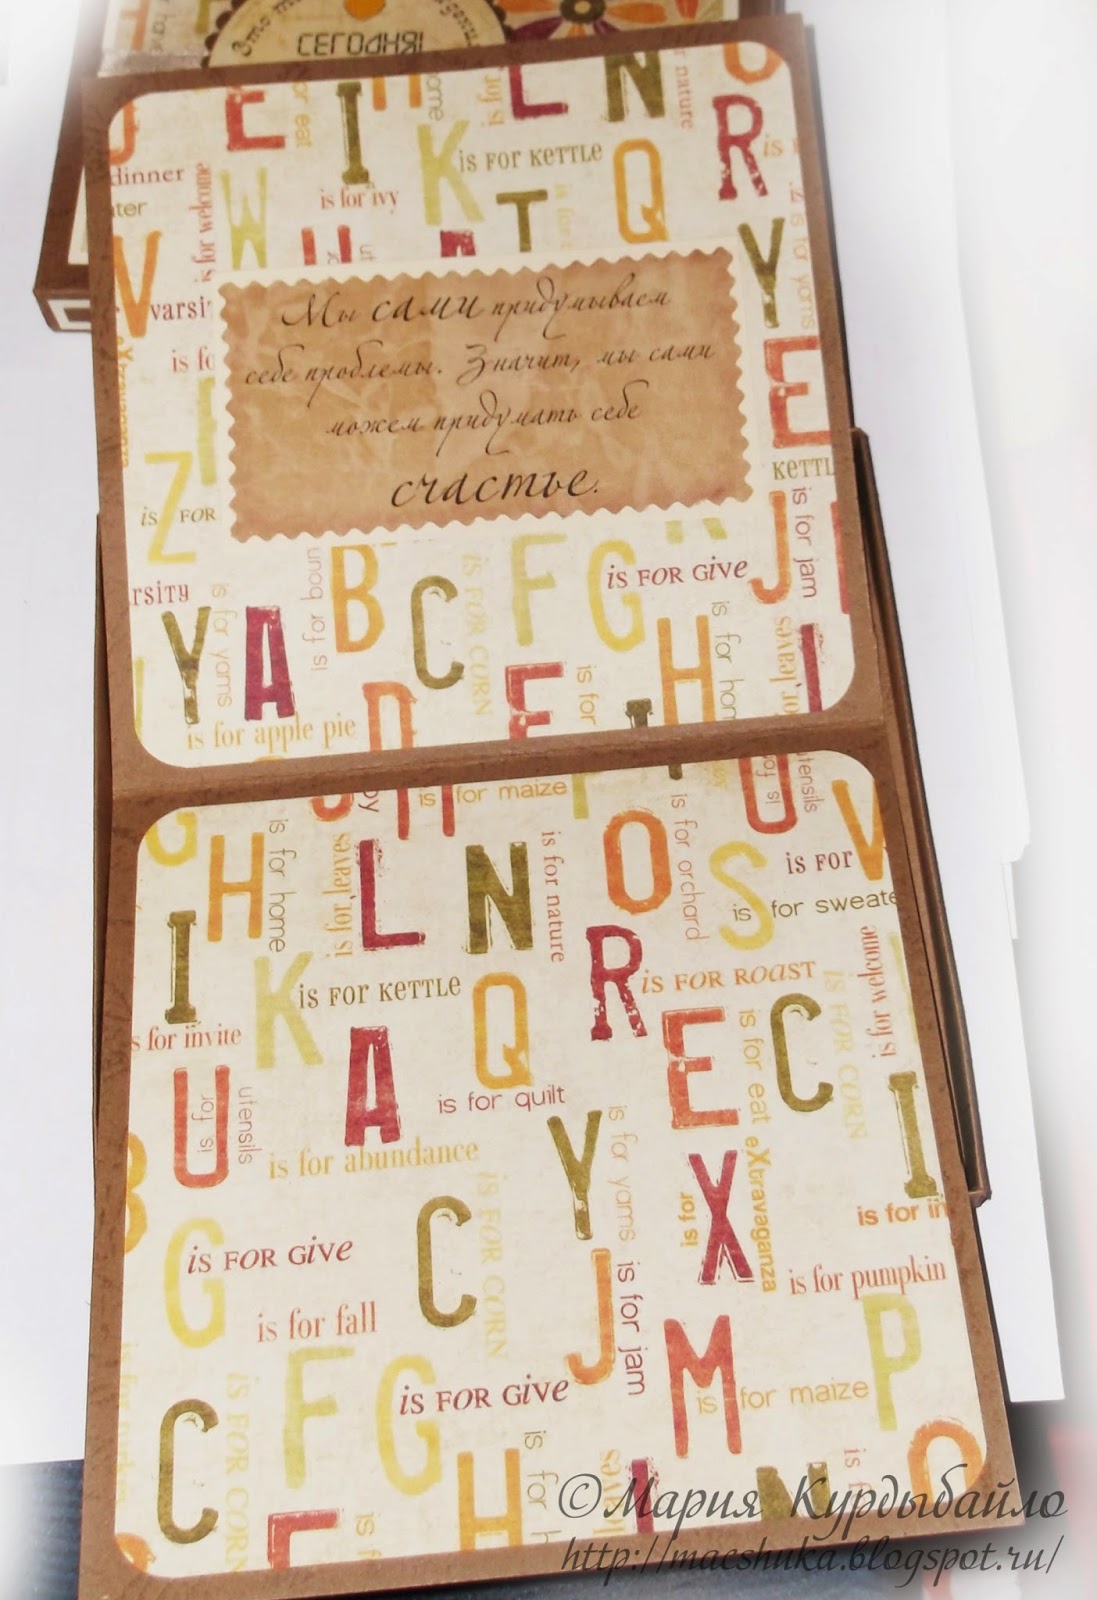 СЕГОДНЯ!
E
I
H
is for eat
home
L
N
is for nature
R
O
dinner
is for welcome
W
is for ivy
K
is FOR KeTTLe
T
Q
Y
V
varsi
is fo
E
KeTTL
Мы сами придумываем
себе проблемы. Значит, мы сами
можем придумать себе
счастье.
Z
is FOR
J
is for jam
rsity
Y
is for yams
A
is for boun
B
C
is FOR CORN
F
G
is FOR Give
H
is for hom
is for leaves
is for apple pie
D
E
is for
is for maize
U
is for
utensils
V
G
H
is for home
is for leaves
L
N
is for nature
O
is for orchard
S
is FOR
is for sweate
I
K
is FOR KeTTLe
Q
R
is FOR ROAST
is for welcome
s for invite
A
E
is for eat
C
is FOR CORN
U
is for
utensils
is for quilt
is for abundance
Y
is for yams
X
is for
eXtravaganza
I
is for in
B
G
is FOR Give
C
is FOR CORN
J
is for jam
is for pumpkin
is for fall
M
is for maize
P
C
is FOR CORN
F
G
is FOR Give
H
is for
leaves
L
N
O
is for
©Мария Курдыбайло
http://macshuka.blogspot.ru/